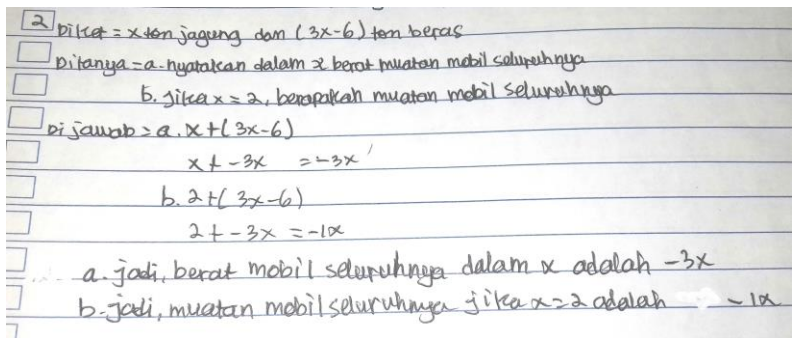 2 Diket = x ton jagung dan (3x-6) ton beras
Ditanya = a. nyatakan dalam x berat muatan mobil seluruhnya
b. jika x = 2, berapakah muatan mobil seluruhnya
Dijawab = a. x+(3x-6)
x + -3x = -3x
b. 2+(3x-6)
2 + -3x = -1x
a. jadi, berat mobil seluruhnya dalam x adalah -3x
b. jadi, muatan mobil seluruhnya jika x=2 adalah -1x